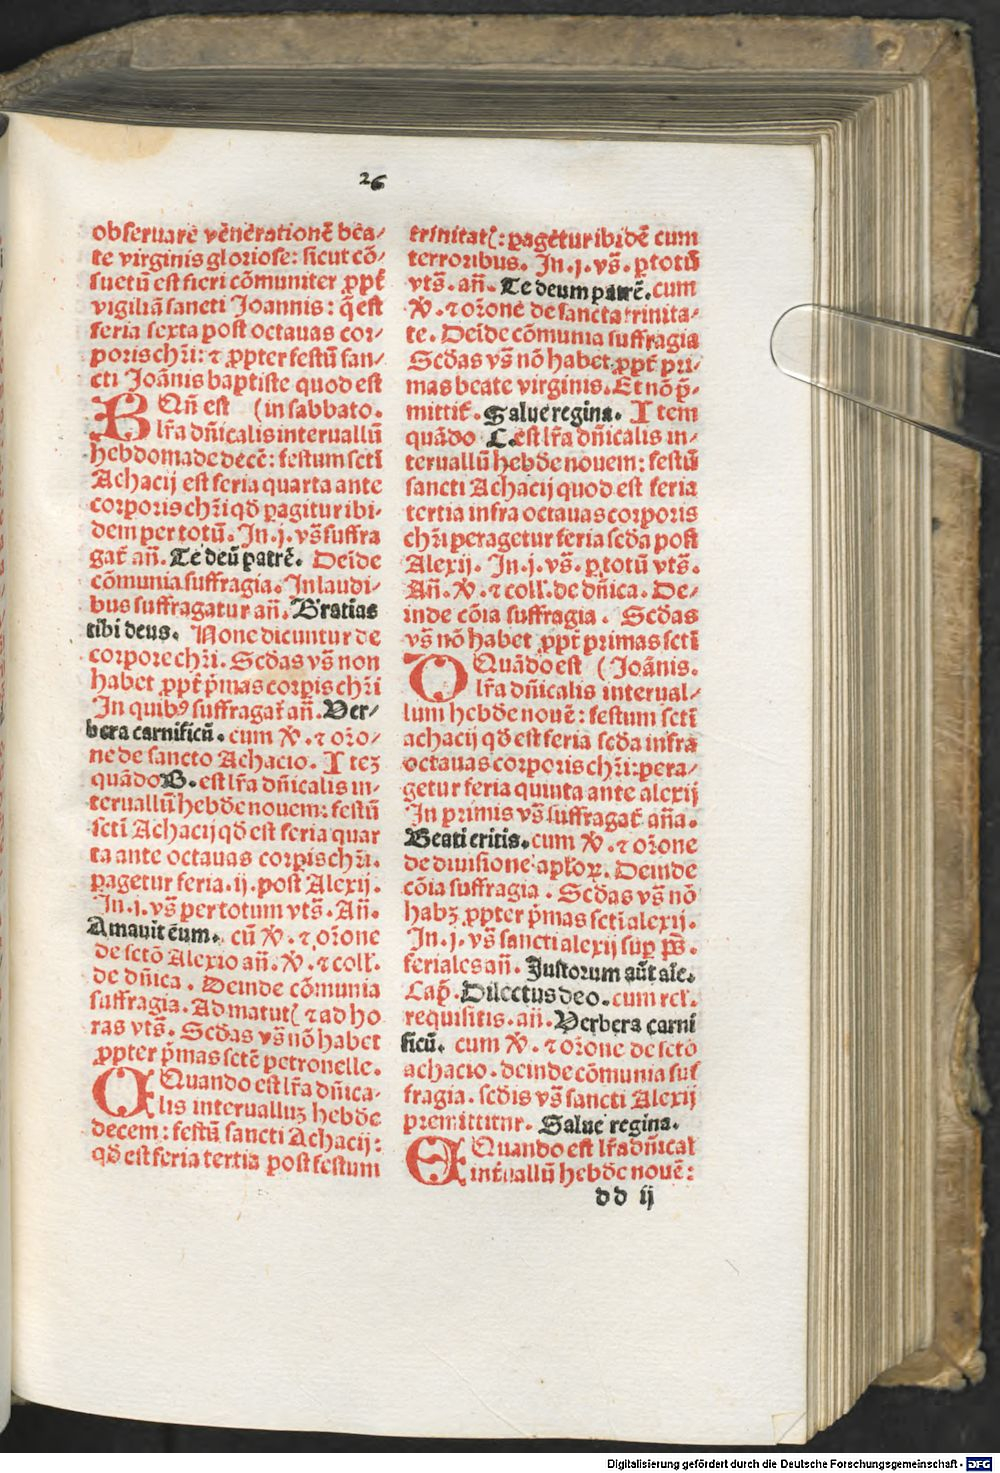 26
obseruare venerationē bea-
te virginis gloriose: sicut cō-
suetū est fieri cōmuniter ꝓpt̄
vigiliā sancti Joannis: q̄ est
feria sexta post octauas cor-
poris chr̄i: ⁊ ꝓpter festū san-
cti Joānis baptiste quod est
BQn̄ est (in sabbato.
lr̄a dn̄icalis interuallū
hebdomade decē: festum sctī
Achacij est feria quarta ante
corporis chr̄i qd̄ ꝑagitur ibi-
dem per totū. In .j. vs̄ suffra
gat̄ an̄. Te deū patrē. Deīde
cōmunia suffragia. In laudi-
bus suffragatur an̄. Gratias
tibi deus. None dicuntur de
corpore chr̄i. Scd̄as vs̄ non
habet ꝓpt̄ p̄mas corꝑis chr̄i
In quibꝰ suffragat̄ an̄. Ver-
bera carnificū. cum ꝟ. ⁊ or̄o-
ne de sancto Achacio. Iteꝫ
quādo B. est lr̄a dn̄icalis in-
teruallū hebd̄e nouem: festū
sctī Achacij qd̄ est feria quar
ta ante octauas corꝑis chr̄i.
ꝑagetur feria .ij. post Alexij.
In .j. vs̄ per totum vts̄. An̄.
Amauit eum. cū ꝟ. ⁊ or̄one
de sctō Alexio an̄. ꝟ. ⁊ coll̄.
de dn̄ica. Deinde cōmunia
suffragia. Ad matut( ⁊ ad ho
ras vts̄. Scd̄as vs̄ nō habet
ꝓpter p̄mas sctē petronelle.
OQuando est lr̄a dn̄ica-
lis interualluꝫ hebd̄e
decem: festū sancti Achacij:
qd̄ est feria tertia post festum
trinitat(: ꝑagetur ibidē cum
terroribus. In .j. vs̄. ꝑ totū
vts̄. an̄. Te deum patrē. cum
ꝟ. ⁊ or̄one de sancta trinita-
te. Deīde cōmunia suffragia
Scd̄as vs̄ nō habet ꝓpt̄ pri-
mas beate virginis. Et nō p̄-
mittit̄. Salue regina. Item
quādo C. est lr̄a dn̄icalis in-
teruallū hebd̄e nouem: festū
sancti Achacij quod est feria
tertia infra octauas corporis
chr̄i peragetur feria scd̄a post
Alexij. In .j. vs̄. ꝑ totū vts̄.
An̄. ꝟ. ⁊ coll̄. de dn̄ica. De-
inde cōia suffragia. Scd̄as
vs̄ nō habet ꝓpt̄ primas sctī
DQuādo est (Joānis.
lr̄a dn̄icalis interual-
lum hebd̄e nouē: festum sctī
achacij qd̄ est feria scd̄a infra
octauas corporis chr̄i: pera-
getur feria quinta ante alexij
In primis vs̄ suffragat̄ an̄a.
Beati eritis. cum ꝟ. ⁊ or̄one
de diuisione apl̄oꝝ. Deinde
cōia suffragia. Scd̄as vs̄ nō
habꝫ ꝓpter p̄mas scti alexij.
In .j. vs̄ sancti alexij suꝑ ps̄.
feriales an̄. Justorum aūt aīe.
Cap̄. Dilectus deo. cum rel̄.
requisitis. an̄. Verbera carni
ficū. cum ꝟ. ⁊ or̄one de sctō
achacio. deinde cōmunia suf
fragia. scd̄is vs̄ sancti Alexij
premittitur. Salue regina.
EQuando est lr̄a dn̄ical̄
int̄uallū hebd̄e nouē:
dd ij
Digitalisierung gefördert durch die Deutsche Forschungsgemeinschaft - DFG